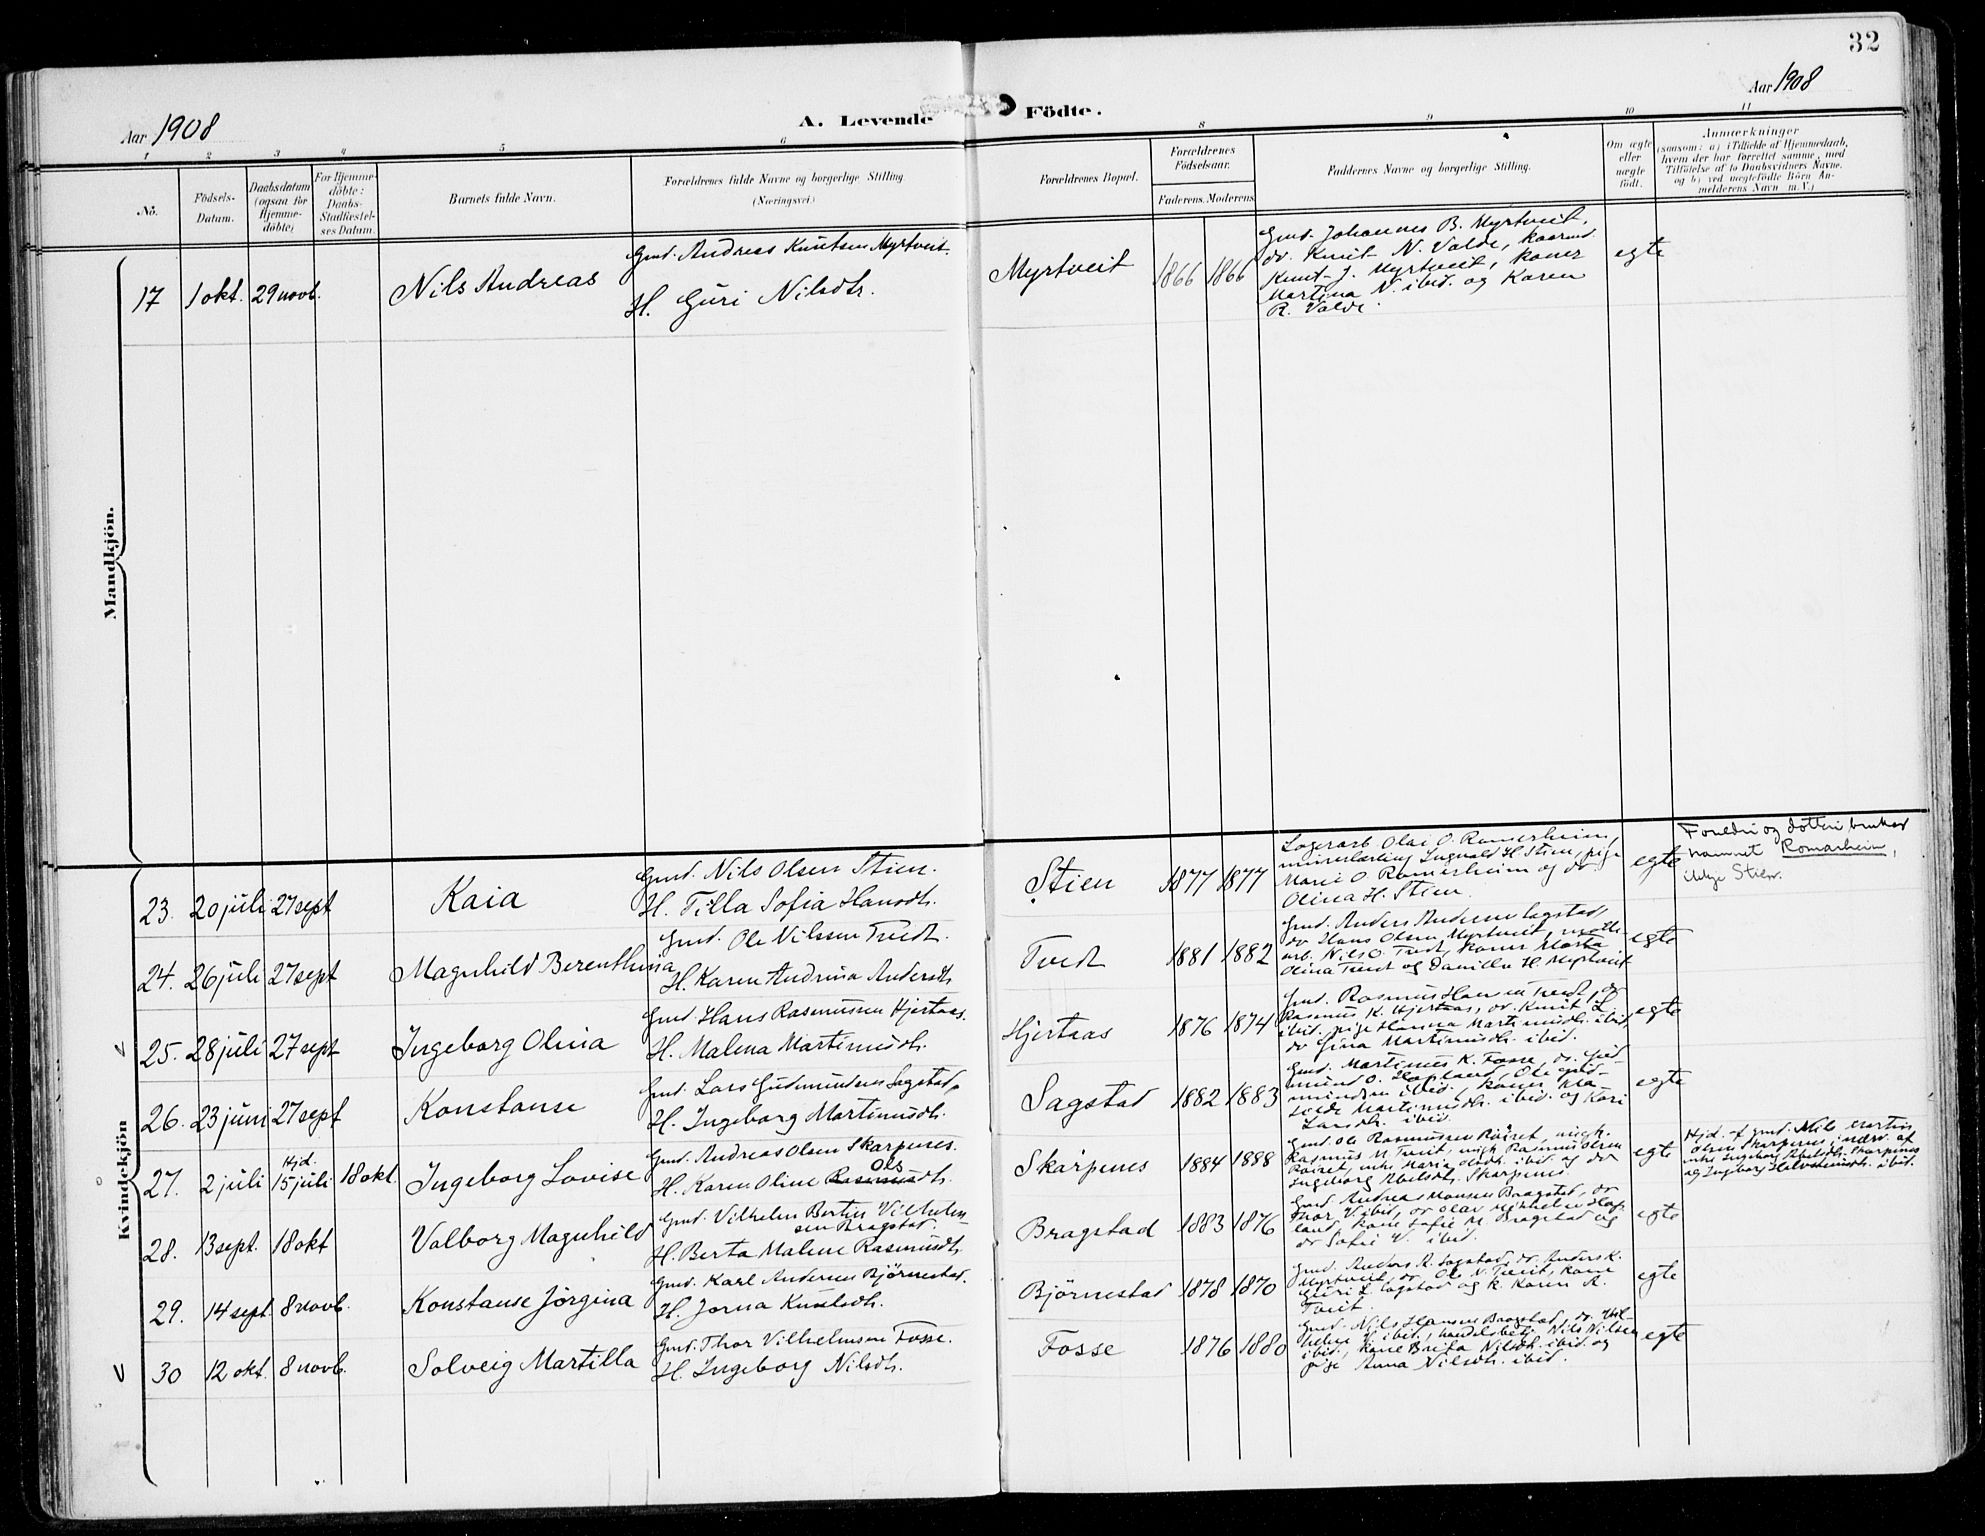 32
Aar 1908
A. Levende Födte.
Aar 1908
1 2 3 4 5 6 8 9 10 11
No.
Födsels-Datum.
Daabsdatum (ogsaa for Hjemme-döbte)
For Hjemme-döbte: Daabs-Stadfæstel-ses Datum.
Barnets fulde Navn.
Forældrenes fulde Navne og borgerlige Stilling
(Næringsvei.)
Forældrenes Bopæl.
Forældrenes Födselsaar.
Faderens. Moderens.
Faddernes Navne og borgerlige Stilling.
Om ægte eller uægte födt.
Anmærkninger
(saasom: a) i Tilfælde af Hjemmedaab,
hvem der har forrettet samme, med
Tilföielse af to Daabsvidners Navne.
og b) ved uægtefödte Börn An-
melderens Navn m. V.)
Mandkjön.
17 1 okt. 29 novb. Nils Andreas
Gmd. Andreas Knutsen Myrtveit.
H. Guri Nilsdtr.
Myrtveit 1866 1866
Gmd. Johannes B. Myrtveit,
do. Knut N. Valde, kaarmd.
Knut J. Myrtveit, koner
Martina N. ibid. og Karen
R. Valde.
egte
Kvindekjön
23. 20 juli 27 sept Kaia
Gmd. Nils Olsen Stien.
H. Tilla Sofia Hansdtr.
Stien 1877 1877
Lagerarb Olai O. Romerheim,
murerlærling Ingvald H. Stien, pige
Marie O. Romerheim og do
Olina H. Stien
egte
Foreldri og dotteri bruker
namnet Romarheim,
ikkje Stien.
24. 26 juli 27 sept Magnhild Berenthina
Gmd. Ole Nilssen Tvedt.
H. Karen Andrina Andersdtr
Tvedt 1881 1882
Gmd. Anders Andersen Sagstad,
do Hans Olsen Myrtveit,
arb. Nils O. Tvedt, koner Marta
Olina Tvedt og Danilla H. Myrtveit
egte
25. 28 juli 27 sept Ingeborg Olina
Gmd. Hans Rasmussen Hjertaas.
H. Malena Martinusdtr.
Hjertaas 1876 1874
Gmd. Rasmus Hansen Tvedt, do
Rasmus K. Hjertaas, do. Knut L.
ibid. pige Hanna Martinusdtr. ibid,
do Gina Martinusdtr. ibid.
egte
26. 23 juni 27 sept Konstanse
Gmd. Lars Gudmundsen Sagstad,
H. Ingeborg Martinusdtr.
Sagstad 1882 1883
Gmd. Martinus K. Fosse, do. Gud-
mund O. Hopland, Ole Gud-
mundsen ibid., koner
Martinusdtr. ibid. og Kari
Larsdtr. ibid.
egte
27. 2 juli Hjd. 15 juli 18 okt. Ingeborg Lovise
Gmd. Andreas Olsen Skarpenes.
H. Karen Oline Rasmusdtr. Ols
Skarpenes 1884 1888
Gmd. Ole Rasmussen Röiret, ungk.
Rasmus M. Tveit, ungk Rasmus Olsen
Röiret, enke Maria Olsdtr. ibid og do
Ingeborg Abelsdtr. Skarpenes
egte
Hjd. af gmd. Nils Martin
Olsen Skarpenes i nærv. af
enke Ingeborg Abelsdtr. Skarpenes
og Ingborg ibid.
28. 13 sept. 18 okt Valborg Magnhild
Gmd. Vilhelm Bertin Vilhelm-
sen Bragstad.
H. Berta Malene Rasmusdtr.
Bragstad 1883 1876
Gmd. Andreas Monsen Bragstad, do
Thor V. ibid, do Olav Mikkelsen Hop-
land, kone Sofie M. Bragstad og
do Sofie V. ibid.
egte
29. 14 sept. 8 novb. Konstanse Jörgina
Gmd. Karl Andersen Björnestad.
H. Jorna Knutsdtr.
Björnestad 1878 1870
Gmd. Anders R. Sagstad, do. Anders K.
Myrtveit, do Ole N. Tveit, kone
Guri L. Sagstad og k. Karen A.
Tveit
egte
30 12 okt. 8 novb. Solveig Martilla
Gmd. Thor Vilhelmsen Fosse.
H. Ingeborg Nilsdtr.
Fosse 1876 1880
Gmd. Nils Hansen Bragstad, do. Vil-
helm V. ibid., handelsbetj. Nils Nilsen
ibid., kone Brita Nilsdtr. ibid. og
pige Anna Nilsdtr. ibid.
egte